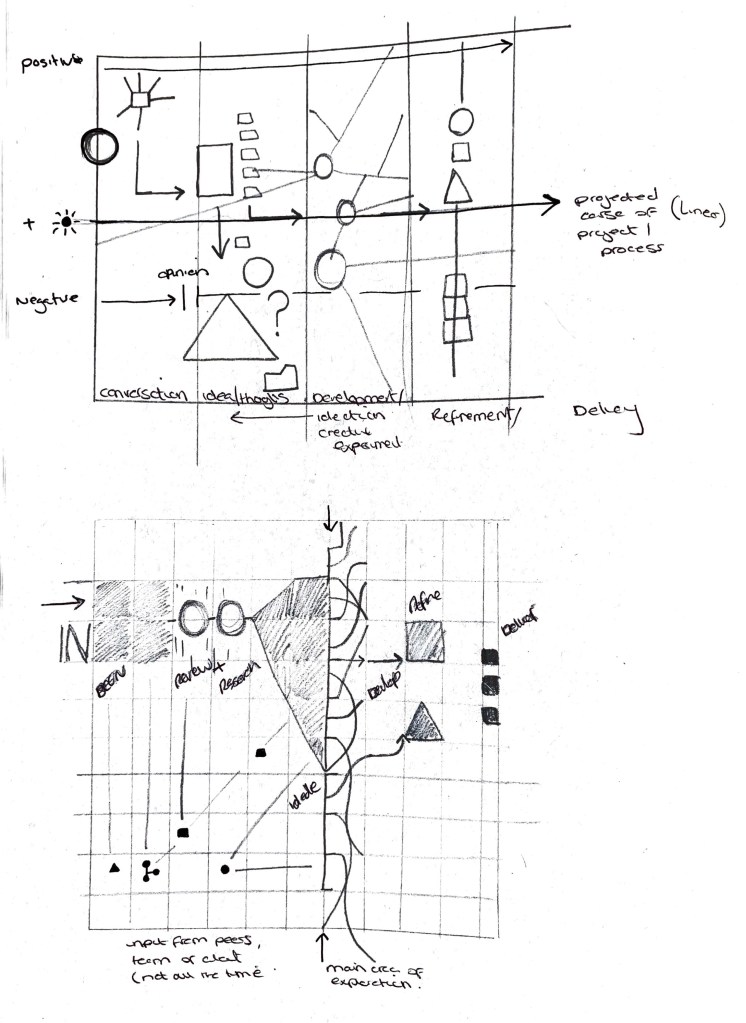 positive
+
projected
corse of (Linear)
project /
process
opinion
Negative
?
conversation idea/thoughts Development/
ideation
creative
Refinement/
Delivery
Refine
Deliver
IN
BEGIN
Review +
Research
Develop
ideate
input from peers,
team or client
(not all the time
main area of
exploration.